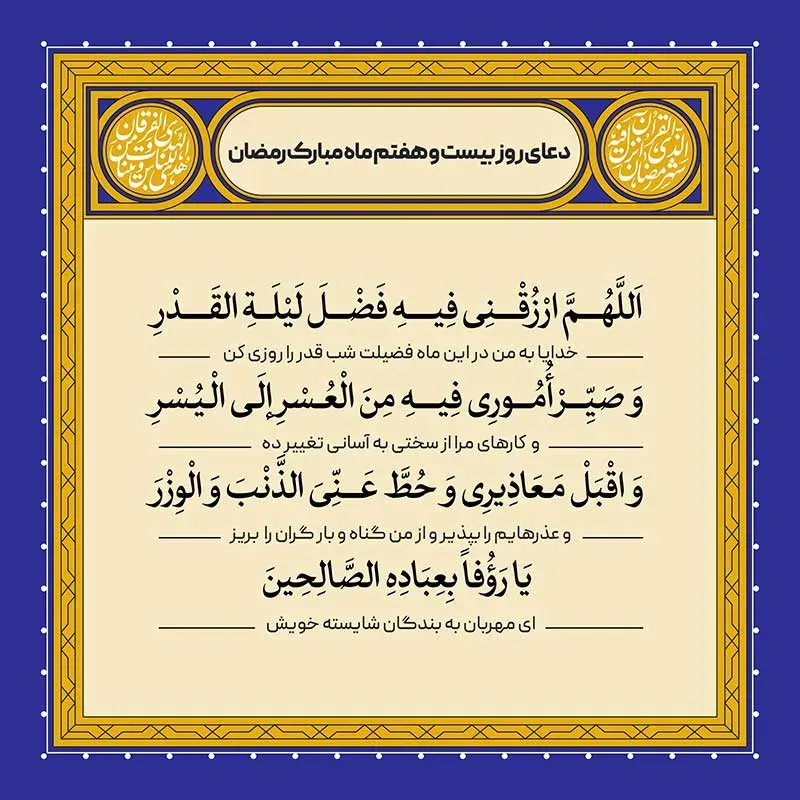 شهر رمضان الذی انزل فیه القرآن
دعای روز بیست و هفتم ماه مبارک رمضان
هدی للناس و بینات من الهدی و الفرقان
اَللَّهُمَّ ارْزُقْنِی فِیهِ فَضْلَ لَیْلَةِ القَدْرِ
خدایا به من در این ماه فضیلت شب قدر را روزی کن
وَ صَیِّرْ أُمُورِی فِیهِ مِنَ الْعُسْرِ إِلَی الْیُسْرِ
و کارهای مرا از سختی به آسانی تغییر ده
وَ اقْبَلْ مَعَاذِیرِی وَ حُطَّ عَنِّیَ الذَّنْبَ وَ الْوِزْرَ
و عذرهایم را بپذیر و از من گناه و بار گران را بریز
یَا رَؤُفاً بِعِبَادِهِ الصَّالِحِینَ
ای مهربان به بندگان شایسته خویش